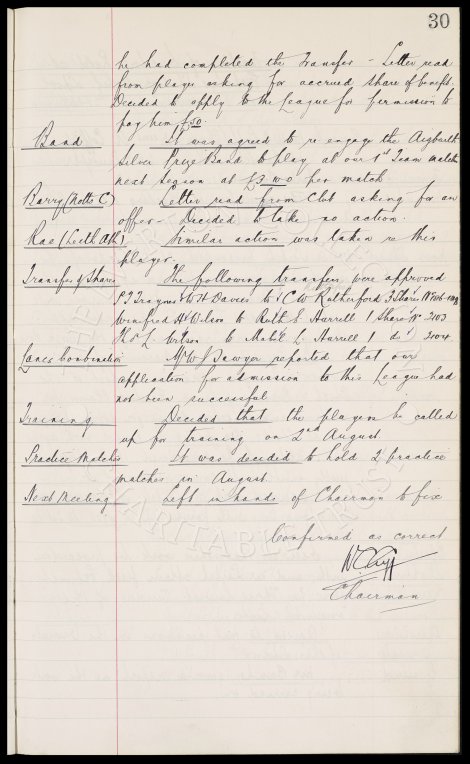 30
he had completed the Transfer – Letter read
from player asking for accrued share of benefit.
Decided to apply to the League for permission to
pay him £50.
Band It was agreed to re engage the Aigburth
Silver Prize Band to play at our 1st Team matches
next season at £3 per match
Barry (Notts C) Letter read from Club asking for an
offer – Decided to take no action.
Rae (Leith Ath) Similar action was taken re this
player.
Transfer of Shares The following transfers were approved
H Davies to C W Rutherford 3 Shares
Winifred H Wilson to Ruth E Harrell 1 Share No 3103
Thos L Wilson to Mabel L Harrell 1 do 3104
Lancs Combination Mr W J Sawyer reported that our
application for admission to this League had
not been successful
Training Decided that the players be called
up for training on 2nd August
Practice Matches It was decided to hold 2 practice
matches in August.
Next Meeting Left in hands of Chairman to fix
Confirmed as correct
Chairman
CHARITABLE TRUST